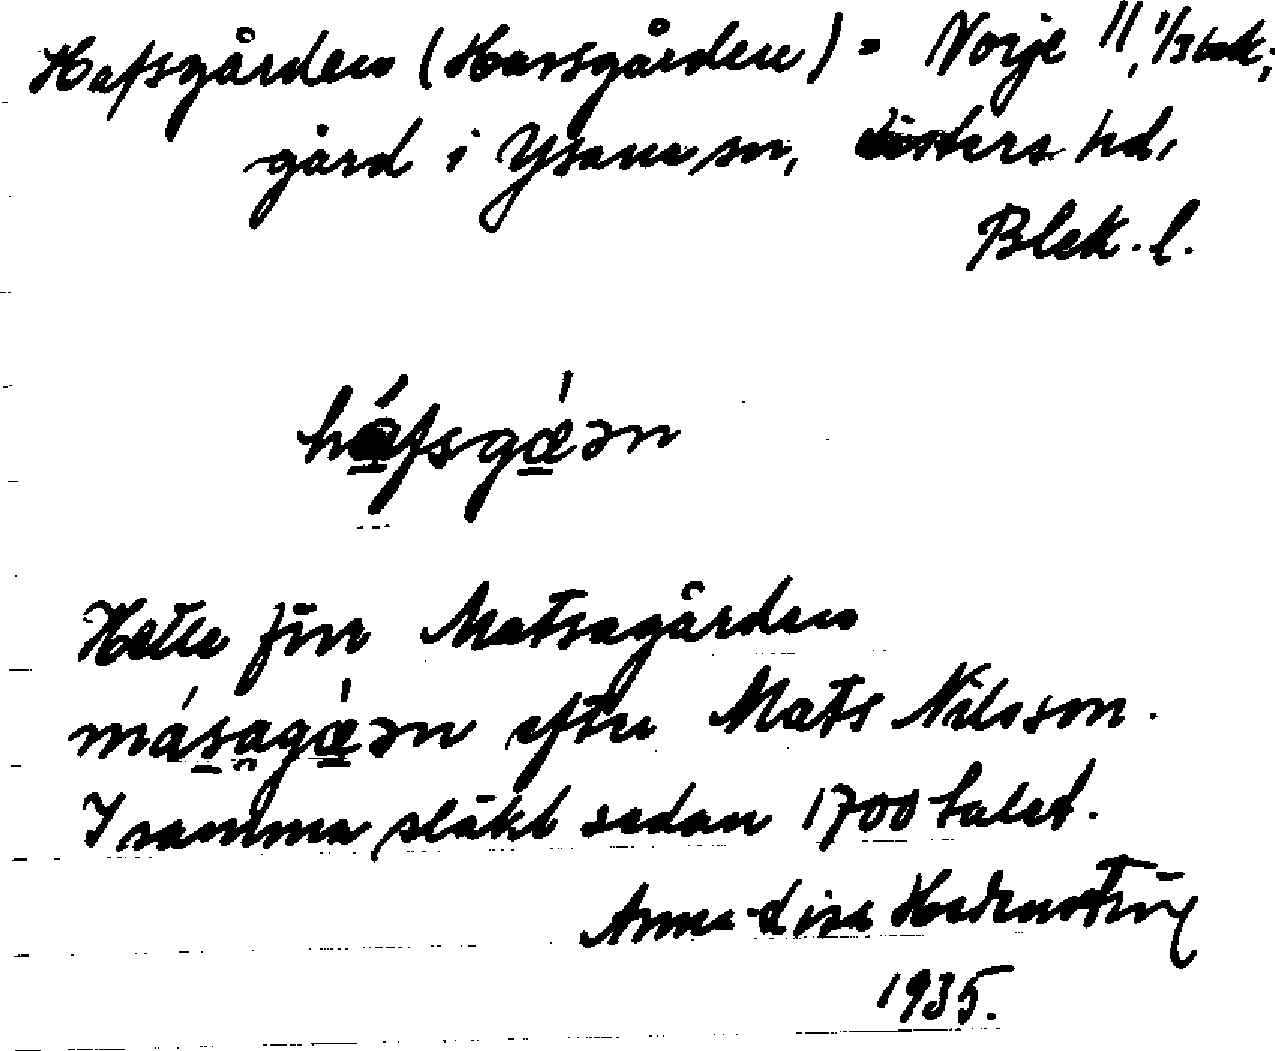 Hafsgården (Havsgården) = Norje 11, 1/3 
gård i Ysane sn, Listers hd,
Blek. l.
háfsgǽən
Hette förr Matsagården
másagǽən efter Mats Nilsson.
I samma släkt sedan 1700 talet.
Anna-Lisa
1935.